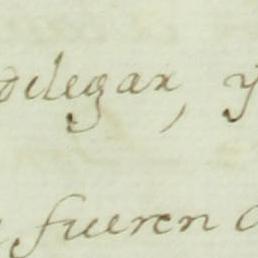 delegar, y
fueren